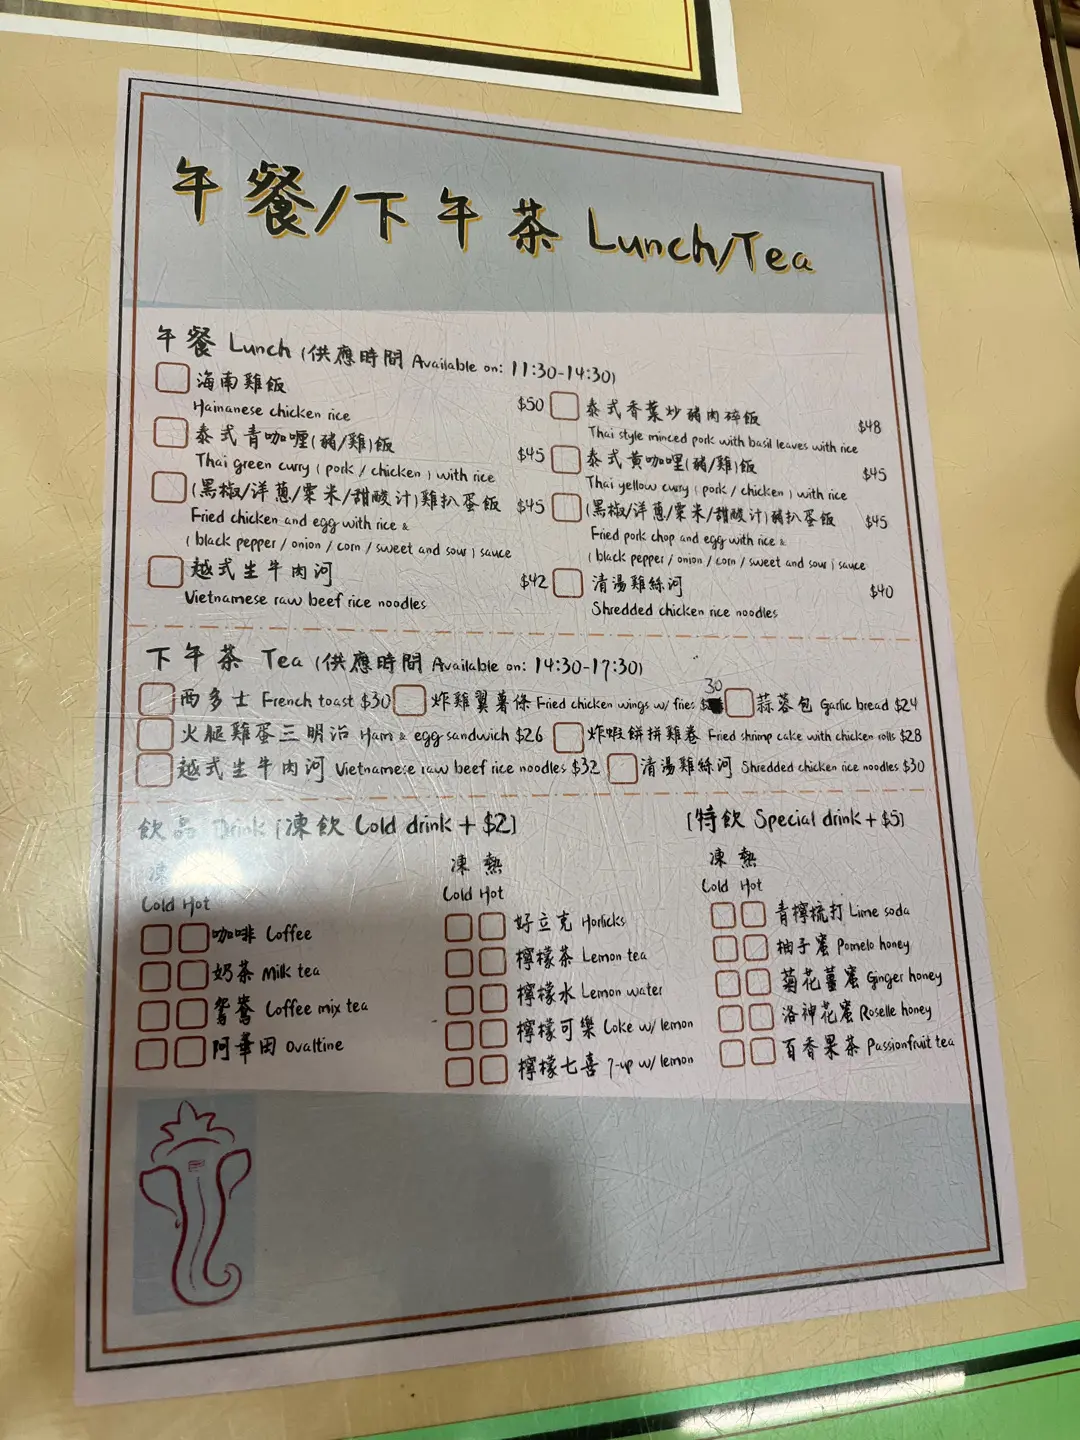 午餐/下午茶 Lunch/Tea
午餐 Lunch (供應時間 Available on: 11:30-14:30)
海南雞飯 $50
Hainanese chicken rice
泰式香葉炒豬肉碎飯 $48
Thai style minced pork with basil leaves with rice
泰式青咖喱(豬/雞)飯 $45
Thai green curry (pork / chicken) with rice
泰式黃咖哩(豬/雞)飯 $45
Thai yellow curry (pork / chicken) with rice
(黑椒/洋蔥/粟米/甜酸汁)雞扒蛋飯 $45
Fried chicken and egg with rice &
(black pepper / onion / corn / sweet and sour) sauce
(黑椒/洋蔥/粟米/甜酸汁)豬扒蛋飯 $45
Fried pork chop and egg with rice &
(black pepper / onion / corn / sweet and sour) sauce
越式生牛肉河 $42
Vietnamese raw beef rice noodles
清湯雞絲河 $40
Shredded chicken rice noodles
下午茶 Tea (供應時間 Available on: 14:30-17:30)
西多士 French toast $30 炸雞翼薯條 Fried chicken wings w/ fries $30 蒜蓉包 Garlic bread $24
火腿雞蛋三明治 Ham & egg sandwich $26 炸蝦餅拼雞卷 Fried shrimp cake with chicken rolls $28
越式生牛肉河 Vietnamese raw beef rice noodles $32 清湯雞絲河 Shredded chicken rice noodles $30
飲品 Drink [凍飲 Cold drink + $2] [特飲 Special drink + $5]
凍
Cold Hot
咖啡 Coffee
奶茶 Milk tea
鴛鴦 Coffee mix tea
阿華田 Ovaltine
凍 熱
Cold Hot
好立克 Horlicks
檸檬茶 Lemon tea
檸檬水 Lemon water
檸檬可樂 Coke w/ lemon
檸檬七喜 7-up w/ lemon
凍 熱
Cold Hot
青檸梳打 Lime soda
柚子蜜 Pomelo honey
菊花薑蜜 Ginger honey
洛神花蜜 Roselle honey
百香果茶 Passionfruit tea